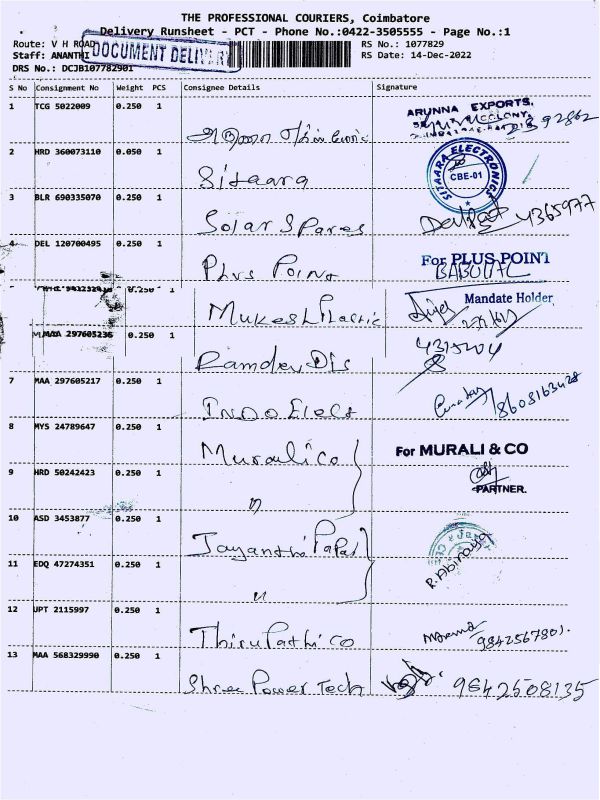 THE PROFESSIONAL COURIERS, Coimbatore
Delivery Runsheet - PCT - Phone No.:0422-3505555 - Page No.:1
Route: V H ROAD
RS No.: 1077829
Staff: ANANTHI
RS Date: 14-Dec-2022
DOCUMENT DELIVERY
DRS No.: DCJB107782901
S No Consignment No Weight PCS Consignee Details Signature
1 TCG 5022009 0.250 1
ARUNNA EXPORTS,
2 HRD 360073110 0.050 1 Sitaara
SITAARA ELECTRONICS
CBE-01
3 BLR 690335070 0.250 1 Solar Spares 4365977
4 DEL 120700495 0.250 1 Plus Point
For PLUS POINT
BABULAL
0.250 1 Mukesh Plastic
Mandate Holder
MAA 297605236 0.250 1 Ramdev Dis
7 MAA 297605217 0.250 1 Indo Elect
8 MYS 24789647 0.250 1 Murali Co
For MURALI & CO
PARTNER.
9 HRD 50242423 0.250 1 "
10 ASD 3453877 0.250 1 Jayanthi Papar
R. Abinaya
11 EDQ 47274351 0.250 1 "
12 UPT 2115997 0.250 1 Thirupathi Co 9842567801.
13 MAA 568329990 0.250 1 Shree Power Tech 9842508135